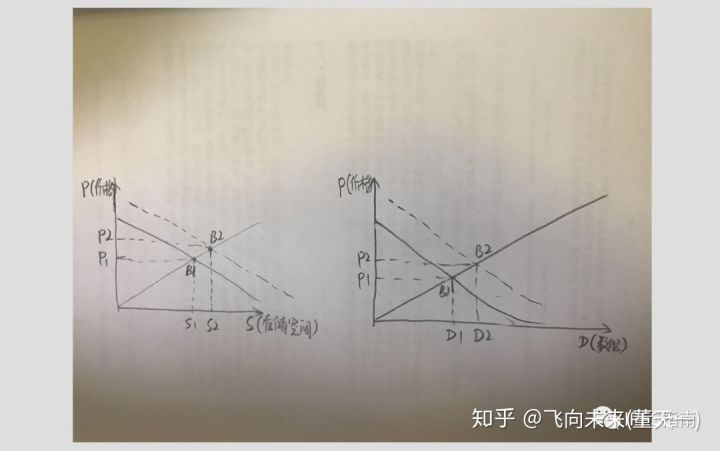 P(价格)
P2
P1
B2
B1
S1
S2
S(存储空间)
P(价格)
P2
P1
B2
B1
D1
D2
D(数据)
知乎 @飞向未来(董天一)